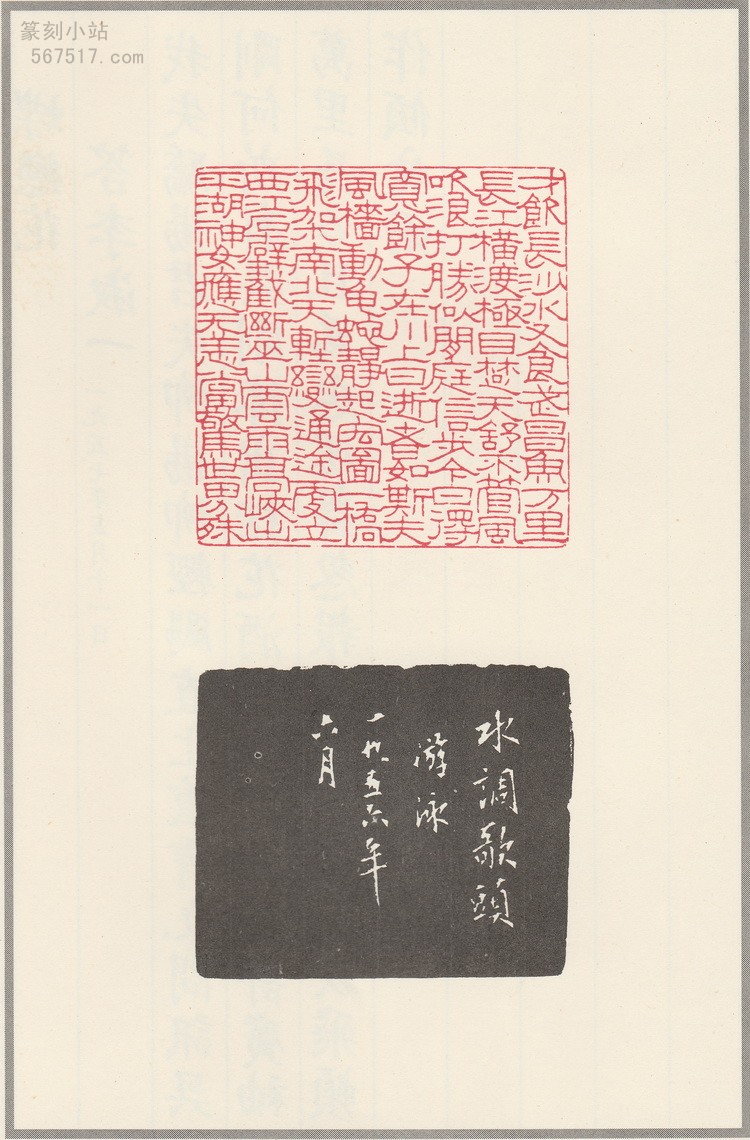 篆刻小站
567517.com
才飲長沙水又食武昌魚万里
長江橫渡極目楚天舒不管風
吹浪打勝似閒庭信步今日得
寬餘子在川上曰逝者如斯夫
風檣動龜蛇靜起宏圖一橋
飛架南北天塹變通途更立
西江石壁截斷巫山雲雨高峽出
平湖神女應无恙當驚世界殊
水調歌頭
游泳
一九五六年
六月